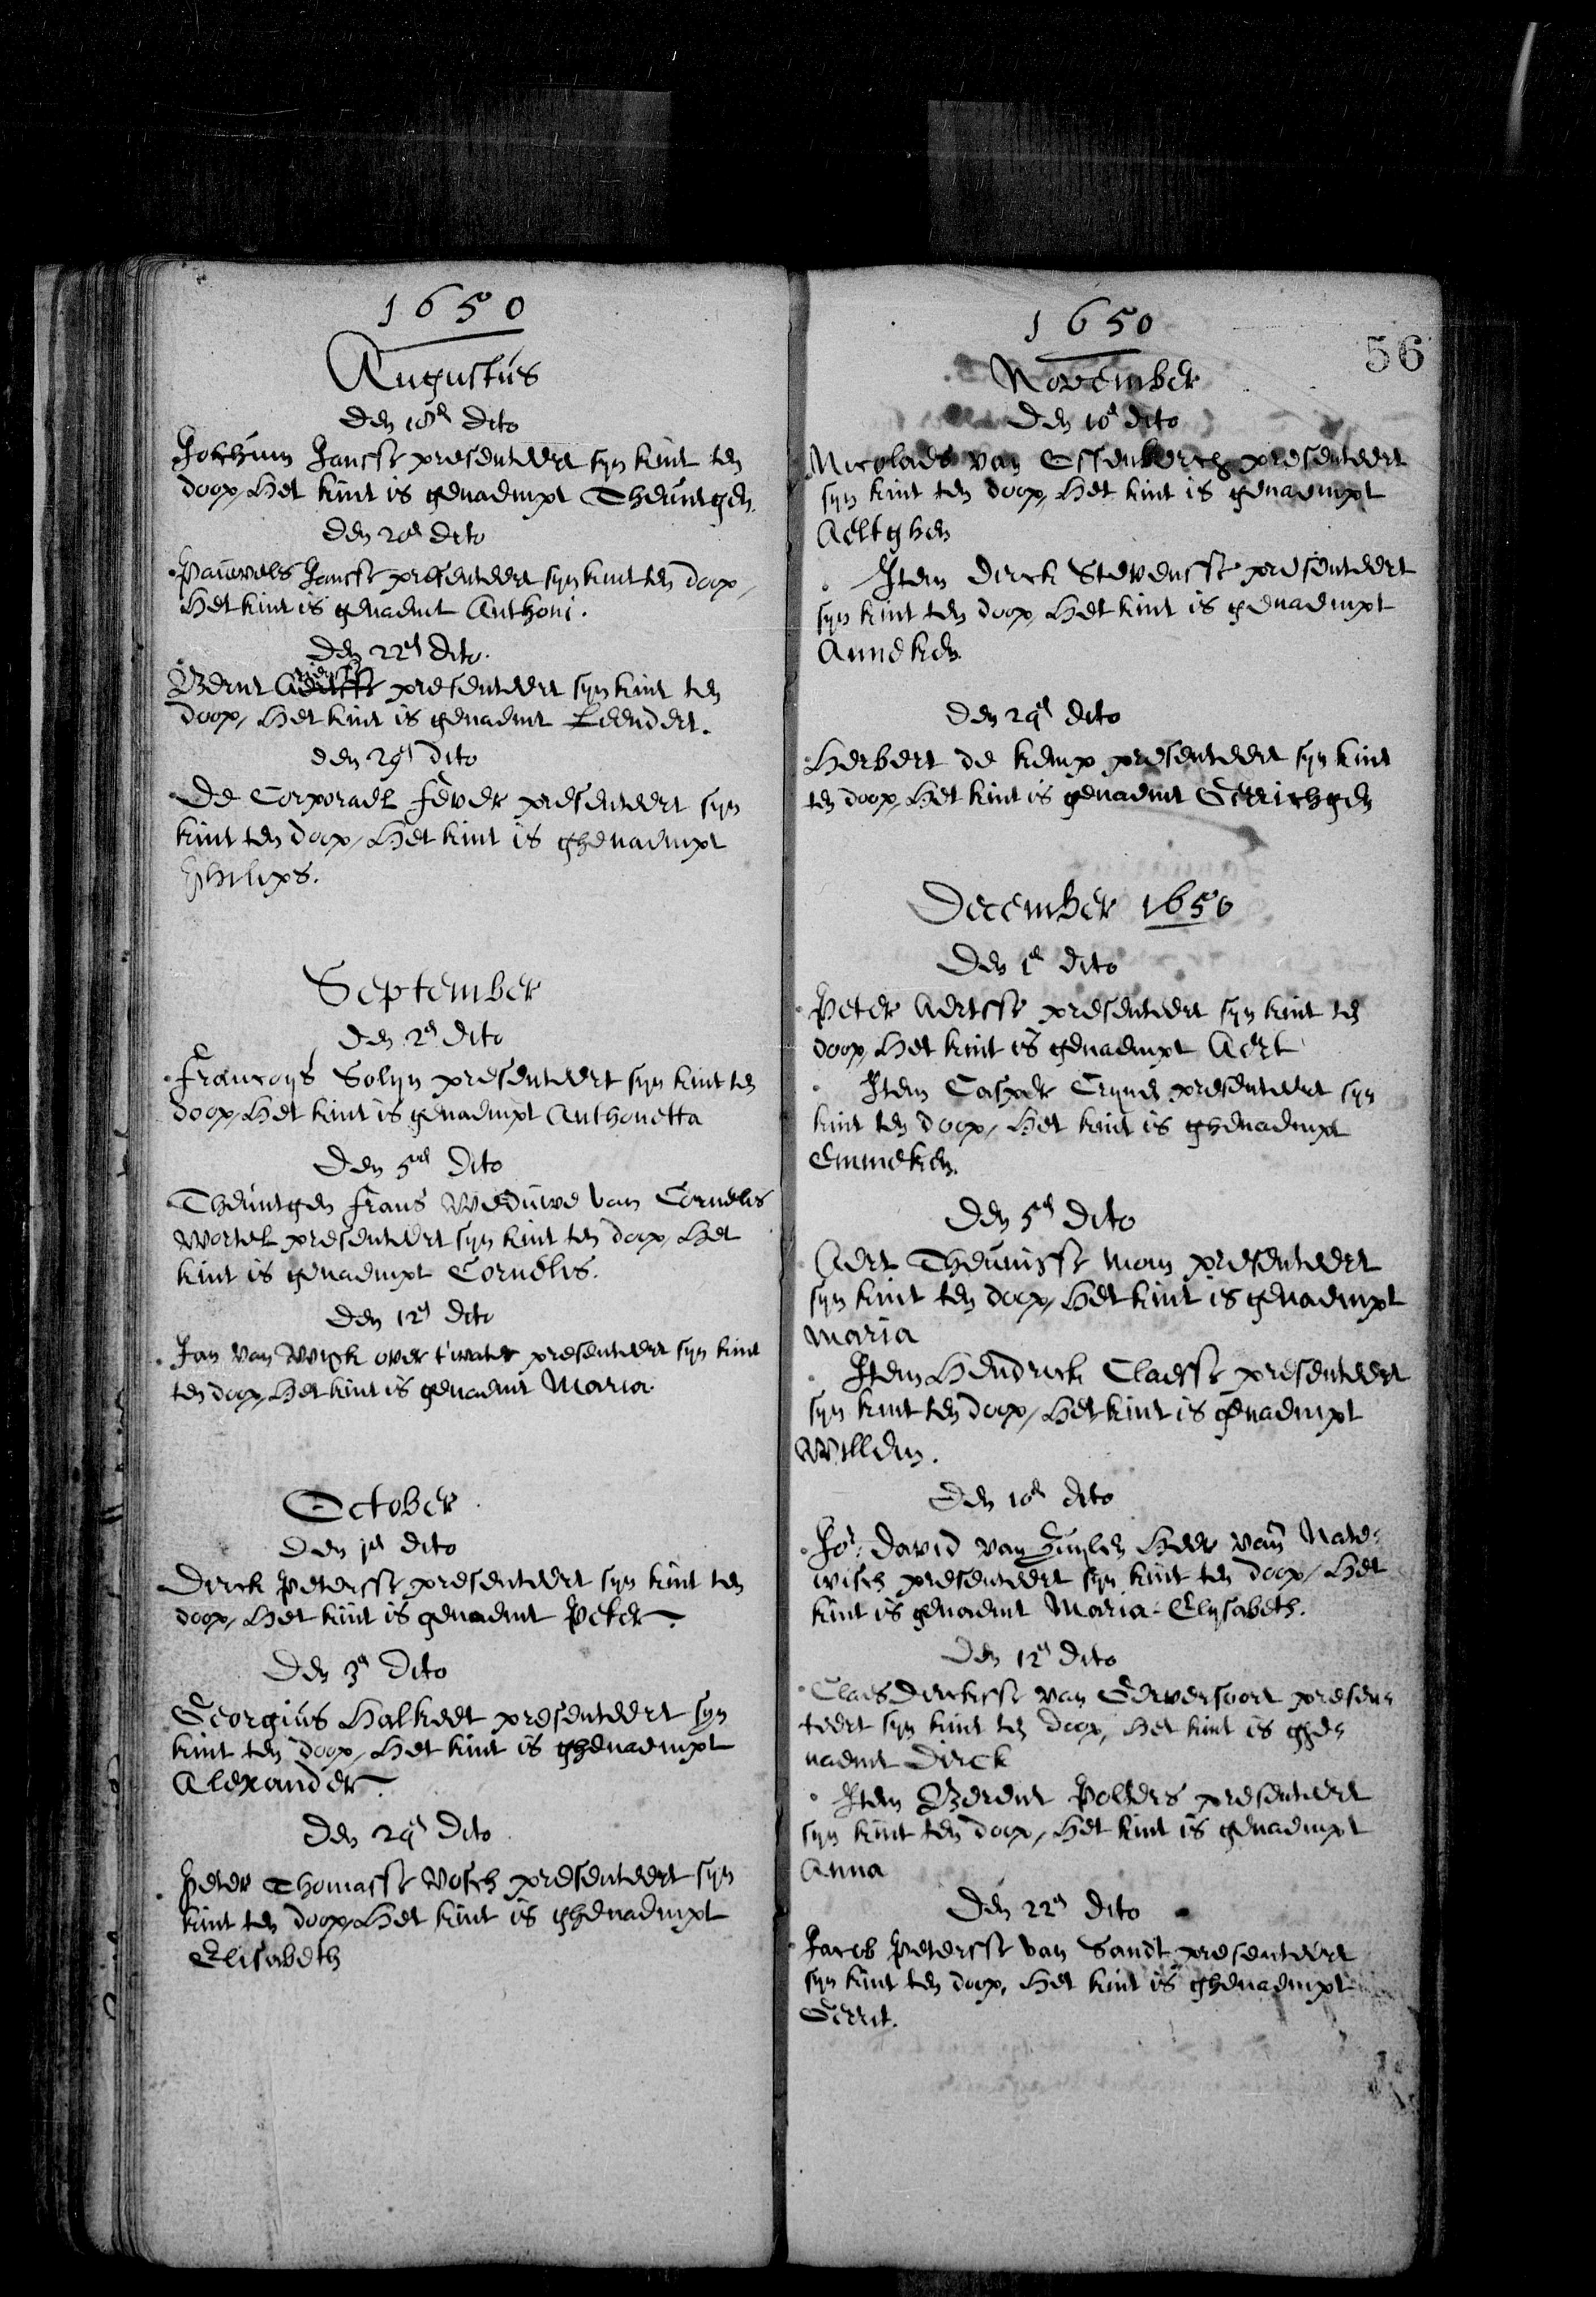 1650
Augustus
Den 18en dito
Jochum Jansse presenteert syn kint ten
doop, Het kint is genaempt Theuntgen.
Den 20en dito
Pauwels Jansse presenteert syn kint ten doop,
Het kint is genaemt Anthoni.
Den 22en dito.
Bernt presenteert syn kint ten
doop, Het kint is genaemt Leendert.
den 29en dito
De Corporael Fever presenteert syn
kint ten doop, Het kint is ghenaempt
Philips.
September
Den 2en dito
Francoys Solyn presenteert syn kint ten
doop, Het kint is genaempt Anthonetta
Den 5en dito
Theuntgen frans Weduwe van Cornelis
Wortel presenteert syn kint ten doop, Het
kint is genaempt Cornelis.
Den 12en dito
Jan van Wyck over t'water presenteert syn kint
ten doop, Het kint is genaemt Maria.
October
Den 1en dito
Dirck Petersse presenteert syn kint ten
doop, Het kint is genaemt Peter.
Den 3en dito
Georgius Halkeet presenteert syn
kint ten doop, Het kint is ghenaempt
Alexander.
Den 29en dito
Peter Thomasse Vosch presenteert syn
kint ten doop, Het kint is ghenaempt
Elisabeth
1650
56
November
Den 10en dito
Nicolaes van Essenberch presenteert
syn kint ten doop, Het kint is genaempt
Aeltghen
Item Dirck Stevensse presenteert
syn kint ten doop, Het kint is genaempt
Anneken.
Den 29en dito
Herbert de kemp presenteert syn kint
ten doop, Het kint is genaemt Gerrichgen
December 1650
Den 1en dito
Peter Aertsse presenteert syn kint ten
doop, Het kint is genaempt Aert
Item Casper Crynes presenteert syn
kint ten doop, Het kint is ghenaempt
Emmeken.
Den 5en dito
Aert Theunisse Mom presenteert
syn kint ten doop, Het kint is genaempt
Maria
Item Hendrick Claesse presenteert
syn kint ten doop, Het kint is genaempt
Willem.
Den 10en dito
Jor. David van Zuylen Heer van Nate-
wisch presenteert syn kint ten doop, Het
kint is genaemt Maria-Elysabeth.
Den 12en dito
Claes Dirckse van presen-
teert syn kint ten doop, Het kint is ghe-
naemt Dirck
Item Berent Polders presenteert
syn kint ten doop, Het kint is genaempt
Anna
Den 22en dito
Jacob Petersse van Sandt presenteert
syn kint ten doop, Het kint is ghenaempt
Gerrit.